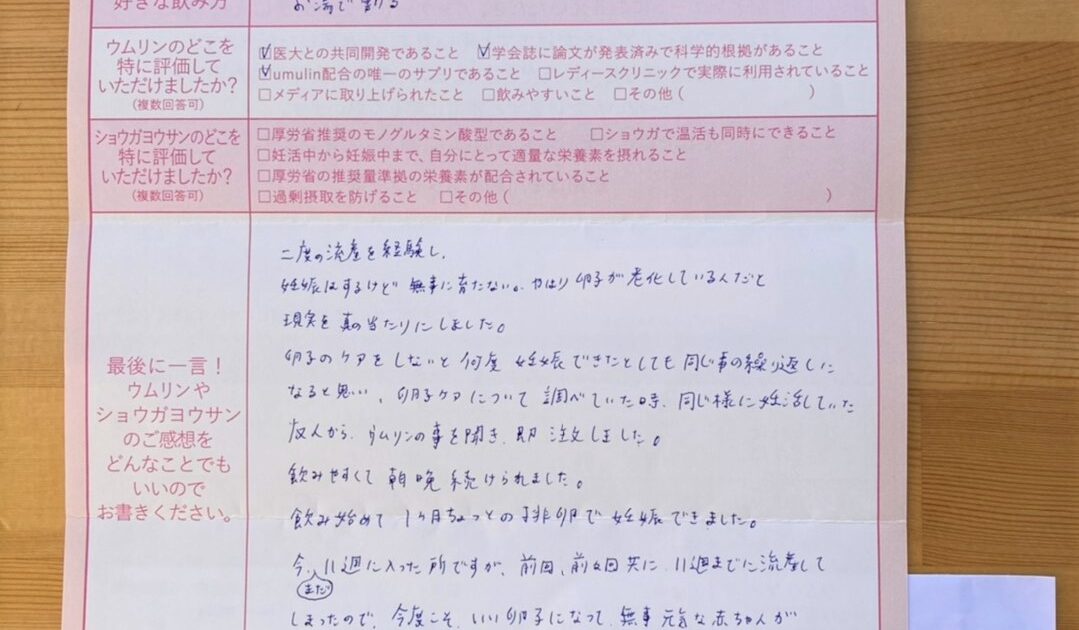 好きな飲み方
お湯で割る
ウムリンのどこを
特に評価して
いただけましたか?
(複数回答可)
☑医大との共同開発であること ☑学会誌に論文が発表済みで科学的根拠があること
☑umulin配合の唯一のサプリであること □レディースクリニックで実際に利用されていること
□メディアに取り上げられたこと □飲みやすいこと □その他( )
ショウガヨウサンのどこを
特に評価して
いただけましたか?
(複数回答可)
□厚労省推奨のモノグルタミン酸型であること □ショウガで温活も同時にできること
□妊活中から妊娠中まで、自分にとって適量な栄養素を摂れること
□厚労省の推奨量準拠の栄養素が配合されていること
□過剰摂取を防げること □その他( )
最後に一言!
ウムリンや
ショウガヨウサン
のご感想を
どんなことでも
いいので
お書きください。
二度の流産を経験し、
妊娠はするけど無事に育たない。やはり卵子が老化しているんだと
現実を真の当たりにしました。
卵子のケアをしないと何度妊娠できたとしても同じ事の繰り返しに
なると思い、卵子ケアについて調べていた時、同じ様に妊活していた
友人から、ウムリンの事を聞き、即注文しました。
飲みやすくて朝晩続けられました。
飲み始めて1ヶ月ちょっとの排卵で妊娠できました。
今、まだ11週に入った所ですが、前回、前々回共に、11週までに流産して
しまったので、今度こそ、いい卵子になって、無事元気な赤ちゃんが